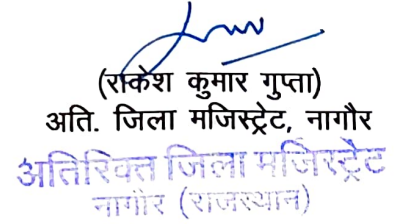 (राकेश कुमार गुप्ता)
अति. जिला मजिस्ट्रेट, नागौर
अतिरिक्त जिला मजिस्ट्रेट
नागौर (राजस्थान)